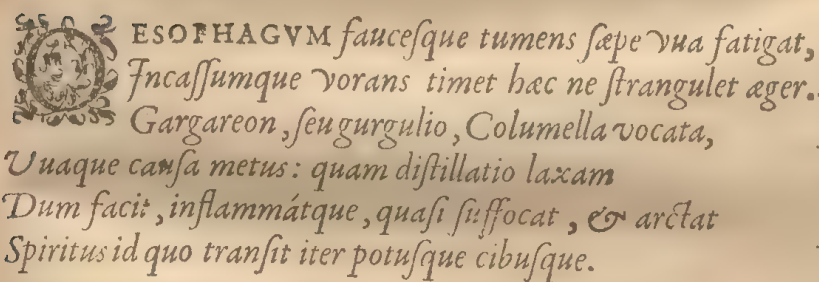 OESOPHAGVM fauceſque tumens ſæpe vua fatigat,
Incaſſumque vorans timet hæc ne ſtrangulet æger.
Gargareon, ſeu gurgulio, Columella vocata,
Vuaque cauſa metus: quam diſtillatio laxam
Dum facit, inflammátque, quaſi ſuffocat, & arctat
Spiritus id quo tranſit iter potuſque cibuſque.